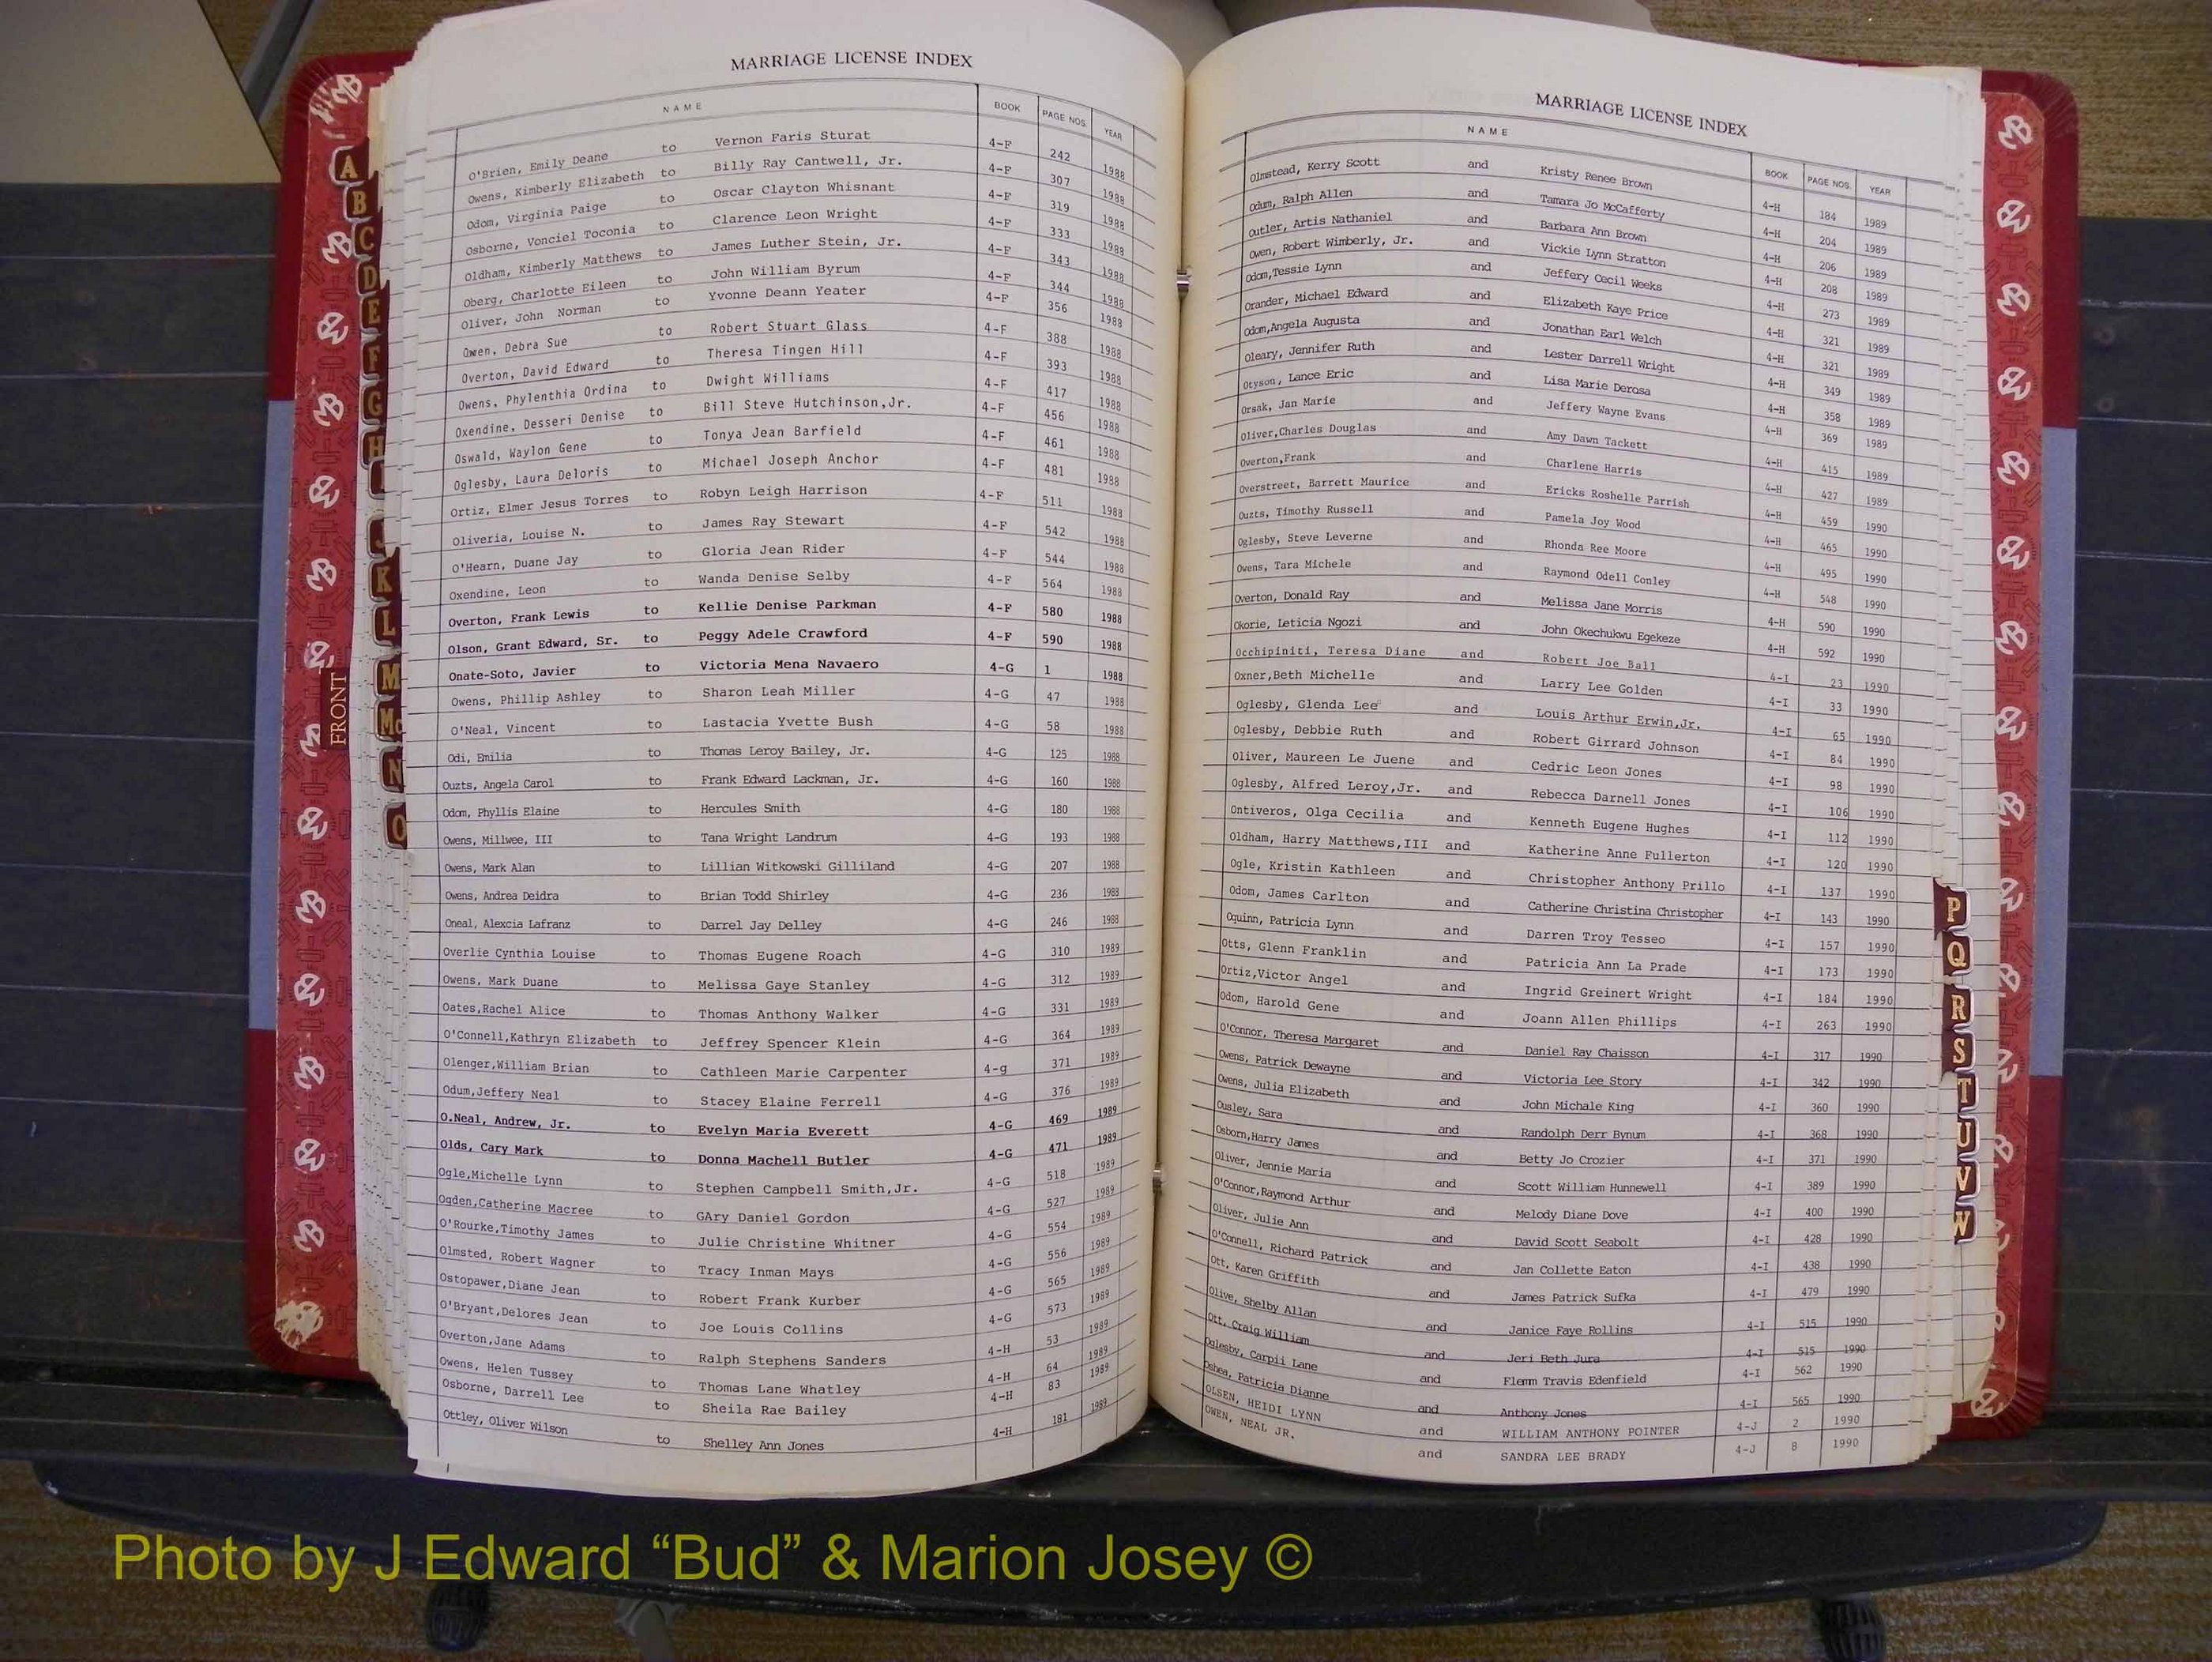 MARRIAGE LICENSE INDEX
NAME BOOK PAGE NOS. YEAR
O'Brien, Emily Deane to Vernon Faris Sturat 4-F 242 1988
Owens, Kimberly Elizabeth to Billy Ray Cantwell, Jr. 4-F 307 1988
Odom, Virginia Paige to Oscar Clayton Whisnant 4-F 319 1988
Osborne, Vonciel Toconia to Clarence Leon Wright 4-F 333 1988
Oldham, Kimberly Matthews to James Luther Stein, Jr. 4-F 343 1988
Oberg, Charlotte Eileen to John William Byrum 4-F 344 1988
Oliver, John Norman to Yvonne Deann Yeater 4-F 356 1988
Owen, Debra Sue to Robert Stuart Glass 4-F 388 1988
Overton, David Edward to Theresa Tingen Hill 4-F 393 1988
Owens, Phylenthia Ordina to Dwight Williams 4-F 417 1988
Oxendine, Desseri Denise to Bill Steve Hutchinson,Jr. 4-F 456 1988
Oswald, Waylon Gene to Tonya Jean Barfield 4-F 461 1988
Oglesby, Laura Deloris to Michael Joseph Anchor 4-F 481 1988
Ortiz, Elmer Jesus Torres to Robyn Leigh Harrison 4-F 511 1988
Oliveria, Louise N. to James Ray Stewart 4-F 542 1988
O'Hearn, Duane Jay to Gloria Jean Rider 4-F 544 1988
Oxendine, Leon to Wanda Denise Selby 4-F 564 1988
Overton, Frank Lewis to Kellie Denise Parkman 4-F 580 1988
Olson, Grant Edward, Sr. to Peggy Adele Crawford 4-F 590 1988
Onate-Soto, Javier to Victoria Mena Navaero 4-G 1 1988
Owens, Phillip Ashley to Sharon Leah Miller 4-G 47 1988
O'Neal, Vincent to Lastacia Yvette Bush 4-G 58 1988
Odi, Emilia to Thomas Leroy Bailey, Jr. 4-G 125 1988
Ouzts, Angela Carol to Frank Edward Lackman, Jr. 4-G 160 1988
Odom, Phyllis Elaine to Hercules Smith 4-G 180 1988
Owens, Millwee, III to Tana Wright Landrum 4-G 193 1988
Owens, Mark Alan to Lillian Witkowski Gilliland 4-G 207 1988
Owens, Andrea Deidra to Brian Todd Shirley 4-G 236 1988
Oneal, Alexcia Lafranz to Darrel Jay Delley 4-G 246 1988
Overlie Cynthia Louise to Thomas Eugene Roach 4-G 310 1989
Owens, Mark Duane to Melissa Gaye Stanley 4-G 312 1989
Oates,Rachel Alice to Thomas Anthony Walker 4-G 331 1989
O'Connell,Kathryn Elizabeth to Jeffrey Spencer Klein 4-G 364 1989
Olenger,William Brian to Cathleen Marie Carpenter 4-g 371 1989
Odum,Jeffery Neal to Stacey Elaine Ferrell 4-G 376 1989
O.Neal, Andrew, Jr. to Evelyn Maria Everett 4-G 469 1989
Olds, Cary Mark to Donna Machell Butler 4-G 471 1989
Ogle,Michelle Lynn to Stephen Campbell Smith,Jr. 4-G 518 1989
Ogden,Catherine Macree to GAry Daniel Gordon 4-G 527 1989
O'Rourke,Timothy James to Julie Christine Whitner 4-G 554 1989
Olmsted, Robert Wagner to Tracy Inman Mays 4-G 556 1989
Ostopawer,Diane Jean to Robert Frank Kurber 4-G 565 1989
O'Bryant,Delores Jean to Joe Louis Collins 4-G 573 1989
Overton,Jane Adams to Ralph Stephens Sanders 4-H 53 1989
Owens, Helen Tussey to Thomas Lane Whatley 4-H 64 1989
Osborne, Darrell Lee to Sheila Rae Bailey 4-H 83 1989
Ottley, Oliver Wilson to Shelley Ann Jones 4-H 181 1989
MARRIAGE LICENSE INDEX
NAME BOOK PAGE NOS. YEAR
Olmstead, Kerry Scott and Kristy Renee Brown 4-H 184 1989
Odum, Ralph Allen and Tamara Jo McCafferty 4-H 204 1989
Outler, Artis Nathaniel and Barbara Ann Brown 4-H 206 1989
Owen, Robert Wimberly, Jr. and Vickie Lynn Stratton 4-H 208 1989
Odom,Tessie Lynn and Jeffery Cecil Weeks 4-H 273 1989
Orander, Michael Edward and Elizabeth Kaye Price 4-H 321 1989
Odom,Angela Augusta and Jonathan Earl Welch 4-H 321 1989
Oleary, Jennifer Ruth and Lester Darrell Wright 4-H 349 1989
Otyson, Lance Eric and Lisa Marie Derosa 4-H 358 1989
Orsak, Jan Marie and Jeffery Wayne Evans 4-H 369 1989
Oliver,Charles Douglas and Amy Dawn Tackett 4-H 415 1989
Overton,Frank and Charlene Harris 4-H 427 1989
Overstreet, Barrett Maurice and Ericks Roshelle Parrish 4-H 459 1990
Ouzts, Timothy Russell and Pamela Joy Wood 4-H 465 1990
Oglesby, Steve Leverne and Rhonda Ree Moore 4-H 495 1990
Owens, Tara Michele and Raymond Odell Conley 4-H 548 1990
Overton, Donald Ray and Melissa Jane Morris 4-H 590 1990
Okorie, Leticia Ngozi and John Okechukwu Egekeze 4-H 592 1990
Occhipiniti, Teresa Diane and Robert Joe Ball 4-I 23 1990
Oxner,Beth Michelle and Larry Lee Golden 4-I 33 1990
Oglesby, Glenda Lee and Louis Arthur Erwin,Jr. 4-I 65 1990
Oglesby, Debbie Ruth and Robert Girrard Johnson 4-I 84 1990
Oliver, Maureen Le Juene and Cedric Leon Jones 4-I 98 1990
Oglesby, Alfred Leroy,Jr. and Rebecca Darnell Jones 4-I 106 1990
Ontiveros, Olga Cecilia and Kenneth Eugene Hughes 4-I 112 1990
Oldham, Harry Matthews,III and Katherine Anne Fullerton 4-I 120 1990
Ogle, Kristin Kathleen and Christopher Anthony Prillo 4-I 137 1990
Odom, James Carlton and Catherine Christina Christopher 4-I 143 1990
Oquinn, Patricia Lynn and Darren Troy Tesseo 4-I 157 1990
Otts, Glenn Franklin and Patricia Ann La Prade 4-I 173 1990
Ortiz,Victor Angel and Ingrid Greinert Wright 4-I 184 1990
Odom, Harold Gene and Joann Allen Phillips 4-I 263 1990
O'Connor, Theresa Margaret and Daniel Ray Chaisson 4-I 317 1990
Owens, Patrick Dewayne and Victoria Lee Story 4-I 342 1990
Owens, Julia Elizabeth and John Michale King 4-I 360 1990
Ousley, Sara and Randolph Derr Bynum 4-I 368 1990
Osborn,Harry James and Betty Jo Crozier 4-I 371 1990
Oliver, Jennie Maria and Scott William Hunnewell 4-I 389 1990
O'Connor,Raymond Arthur and Melody Diane Dove 4-I 400 1990
Oliver, Julie Ann and David Scott Seabolt 4-I 428 1990
O'Connell, Richard Patrick and Jan Collette Eaton 4-I 438 1990
Ott, Karen Griffith and James Patrick Sufka 4-I 479 1990
Olive, Shelby Allan and Janice Faye Rollins 4-I 515 1990
Ott, Craig William and Jeri Beth Jura 4-I 515 1990
Oglesby, Carpii Lane and Flemm Travis Edenfield 4-I 562 1990
Oshea, Patricia Dianne and Anthony Jones 4-I 565 1990
OLSEN, HEIDI LYNN and WILLIAM ANTHONY POINTER 4-J 2 1990
OWEN, NEAL JR. and SANDRA LEE BRADY 4-J 8 1990
A
B
C
D
E
F
G
H
I
J
K
L
M
Mc
N
O
FRONT
P
Q
R
S
T
U
V
W
Photo by J Edward “Bud” & Marion Josey ©